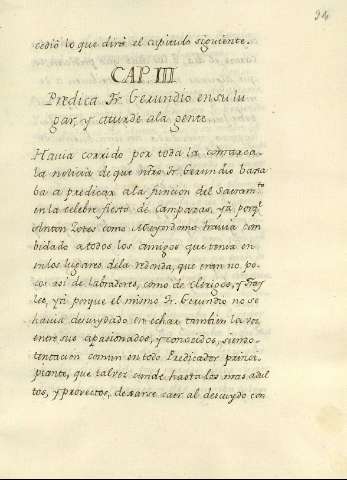 94
cedió lo que dirá el capitulo siguiente.
CAP. III
Predica Fr. Gerundio en su lu
gar, y aturde a la gente
Havia corrido por toda la comarca
la noticia de que nrõ Fr. Gerundio baxa
ba a predicar a la funcion del Sacramto
en la celebre fiesta de Campazas, yà porqe
Anton Zotes como Mayordomo havia com
bidado a todos los amigos que tenia en
en los lugares de la redonda, que eran no po
cos asi de labradores, como de clerigos, y Fray
les, yà porque el mismo Fr. Gerundio no se
havia descuydado en echar tambien la voz
entre sus apasionados, y conocidos, siendo
tentacion comun en todo Predicador princi
piante, que tal vez cunde hasta los mas adul
tos, y provectos, dexarse caer al descuydo con